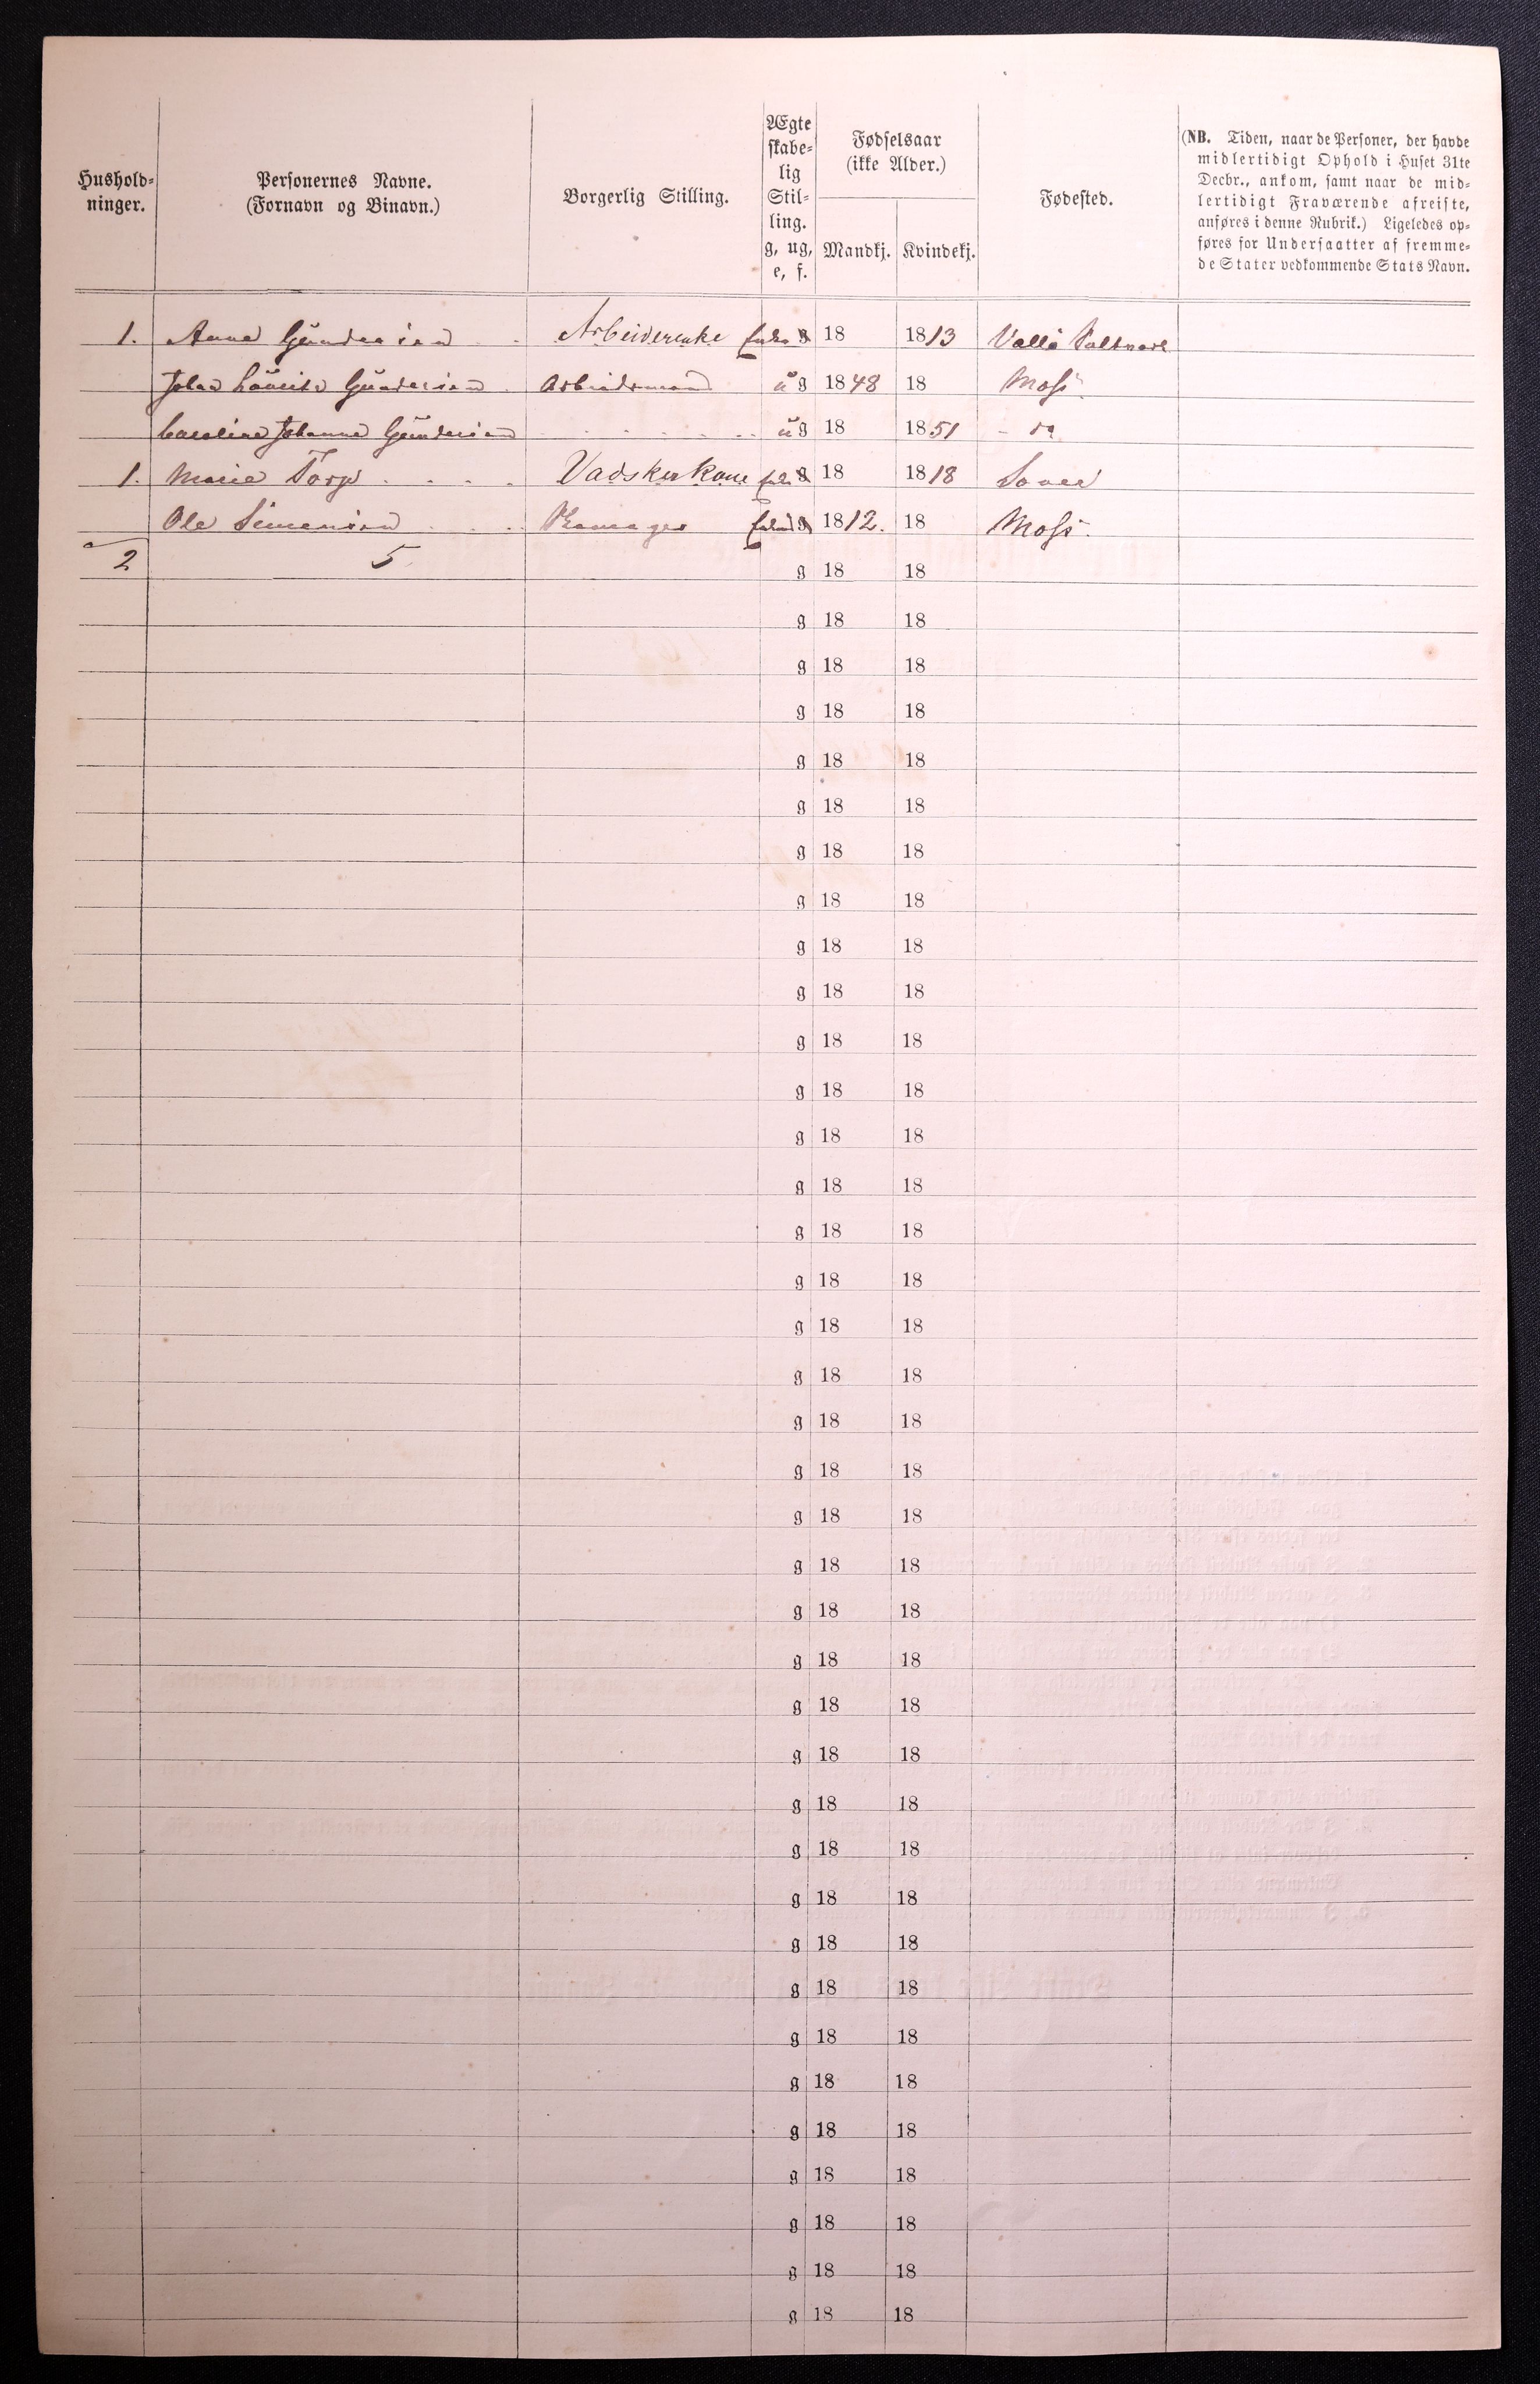 Hushold-
ninger.
Personernes Navne.
(Fornavn og Binavn.)
Borgerlig Stilling.
Ægte
skabe-
lig
Stil-
ling.
g, ug,
e, f.
Fødselsaar
(ikke Alder.)
Mandkj. Kvindekj.
Fødested.
(NB. Tiden, naar de Personer, der havde
midlertidigt Ophold i Huset 31te
Decbr., ankom, samt naar de mid-
lertidigt Fraværende afreiste,
anføres i denne Rubrik.) Ligeledes op-
føres for Undersaatter af fremme-
de Stater vedkommende Stats Navn.
1. Anne Gundersen Arbeiderenke g 18 1813 Vallø Saltværk
Johan Laurits Gundersen Arbeidsmand ug 1848 18 Moss
Caroline Johanne Gundersen ug 18 1851 - do
1. Marie Torp Vadskerkone g 18 1818 Soner
Ole Simensen g 1812. 18 Moss.
2 5 g 18 18
g 18 18
g 18 18
g 18 18
g 18 18
g 18 18
g 18 18
g 18 18
g 18 18
g 18 18
g 18 18
g 18 18
g 18 18
g 18 18
g 18 18
g 18 18
g 18 18
g 18 18
g 18 18
g 18 18
g 18 18
g 18 18
g 18 18
g 18 18
g 18 18
g 18 18
g 18 18
g 18 18
g 18 18
g 18 18
g 18 18
g 18 18
g 18 18
g 18 18
g 18 18
g 18 18
g 18 18
g 18 18